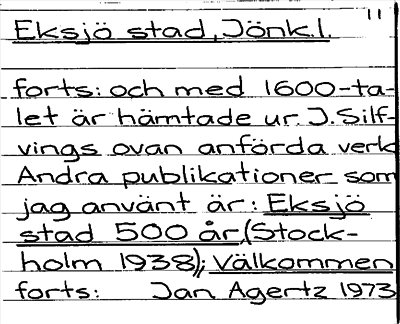 Eksjö stad, Jönk.l. 11
forts: och med 1600-ta-
let är hämtade ur J. Silf-
vings ovan anförda verk
Andra publikationer som
jag använt är: Eksjö
stad 500 år (Stock-
holm 1938); Välkommen
forts: Jan Agertz 1973